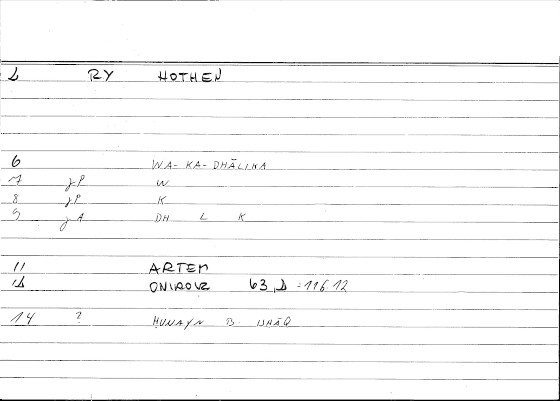 1 RY HOTHEN
6 WA-KA-DHĀLIKA
7 gP W
8 gP K
9 gA DH L K
11 ARTEM
12 ONIROKR 63,1 = 116.12
14 ? ḤUNAYN B. ISḤĀQ